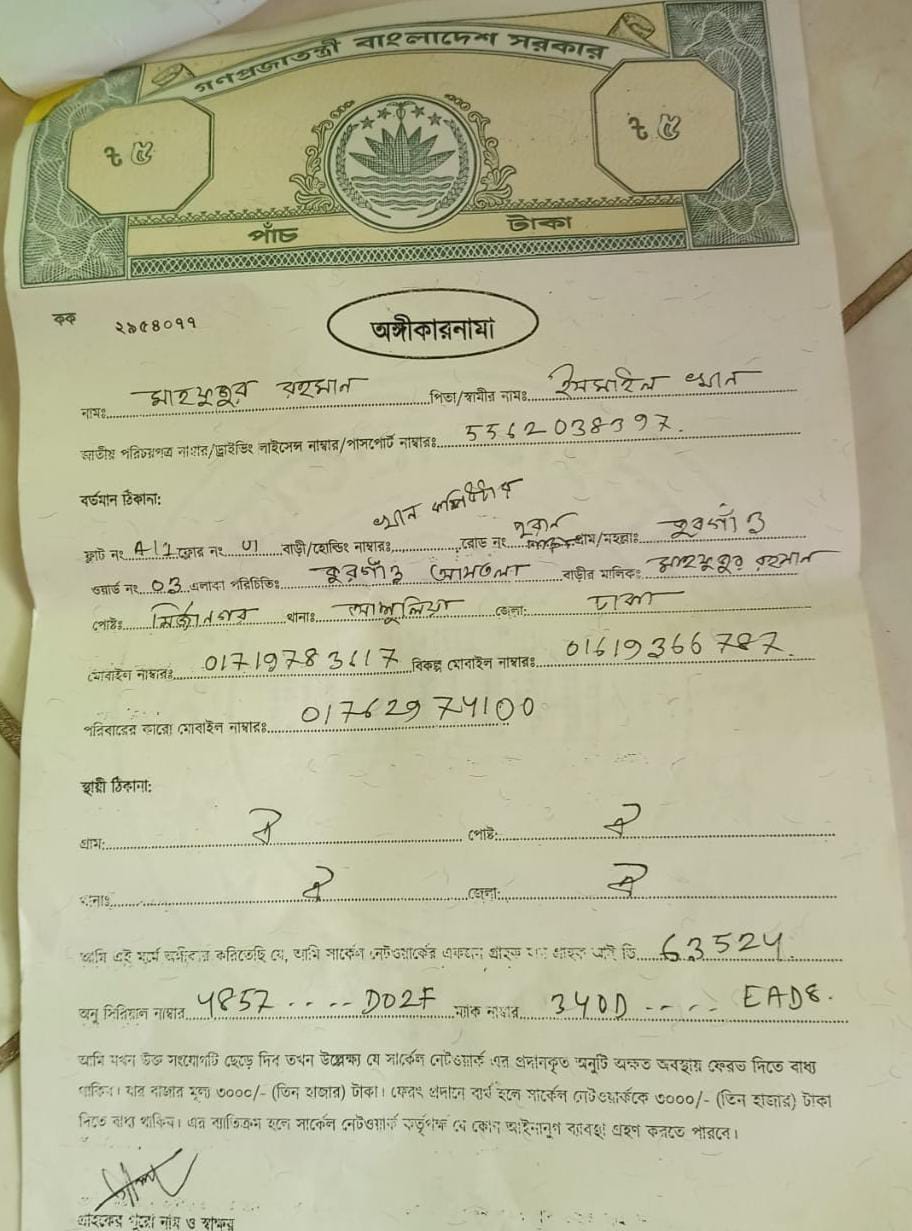 গণপ্রজাতন্ত্রী বাংলাদেশ সরকার
৳ ৫ ৳ ৫
পাঁচ টাকা
কক ২৯৫৪০৭৭
অঙ্গীকারনামা
নামঃ মাহফুজুর রহমান পিতা/স্বামীর নামঃ ইসমাইল খান
জাতীয় পরিচয়পত্র নাম্বার/ড্রাইভিং লাইসেন্স নাম্বার/পাসপোর্ট নাম্বারঃ 5562038397.
বর্তমান ঠিকানা:
খান
ফ্লাট নং A/1 ফ্লোর নং 01 বাড়ী/হোল্ডিং নাম্বারঃ রোড নং পুরান গ্রাম/মহল্লাঃ কুরগাঁও
ওয়ার্ড নং 03 এলাকা পরিচিতিঃ কুরগাঁও আমতলা বাড়ীর মালিকঃ মাহফুজুর রহমান
পোষ্টঃ মির্জানগর থানাঃ আশুলিয়া জেলা: ঢাকা
মোবাইল নাম্বারঃ 01719783617 বিকল্প মোবাইল নাম্বারঃ 01619366787.
পরিবারের কারো মোবাইল নাম্বারঃ 01762974100
স্থায়ী ঠিকানা:
গ্রাম: ঐ পোষ্ট: ঐ
থানাঃ ঐ জেলা: ঐ
আমি এই মর্মে অঙ্গীকার করিতেছি যে, আমি সার্কেল নেটওয়ার্কের একজন গ্রাহক যার গ্রাহক আই ডি 63524
অনু সিরিয়াল নাম্বার 4857 .... D02F ম্যাক নাম্বার 340D .... EAD8.
আমি যখন উক্ত সংযোগটি ছেড়ে দিব তখন উল্লেক্ষ্য যে সার্কেল নেটওয়ার্ক এর প্রদানকৃত অনুটি অক্ষত অবস্থায় ফেরত দিতে বাধ্য
থাকিব। যার বাজার মূল্য ৩০০০/- (তিন হাজার) টাকা। ফেরৎ প্রদানে ব্যর্থ হলে সার্কেল নেটওয়ার্ককে ৩০০০/- (তিন হাজার) টাকা
দিতে বাধ্য থাকিব। এর ব্যতিক্রম হলে সার্কেল নেটওয়ার্ক কর্তৃপক্ষ যে কোন আইনানুগ ব্যবস্থা গ্রহণ করতে পারবে।
গ্রাহকের পুরো নাম ও স্বাক্ষর